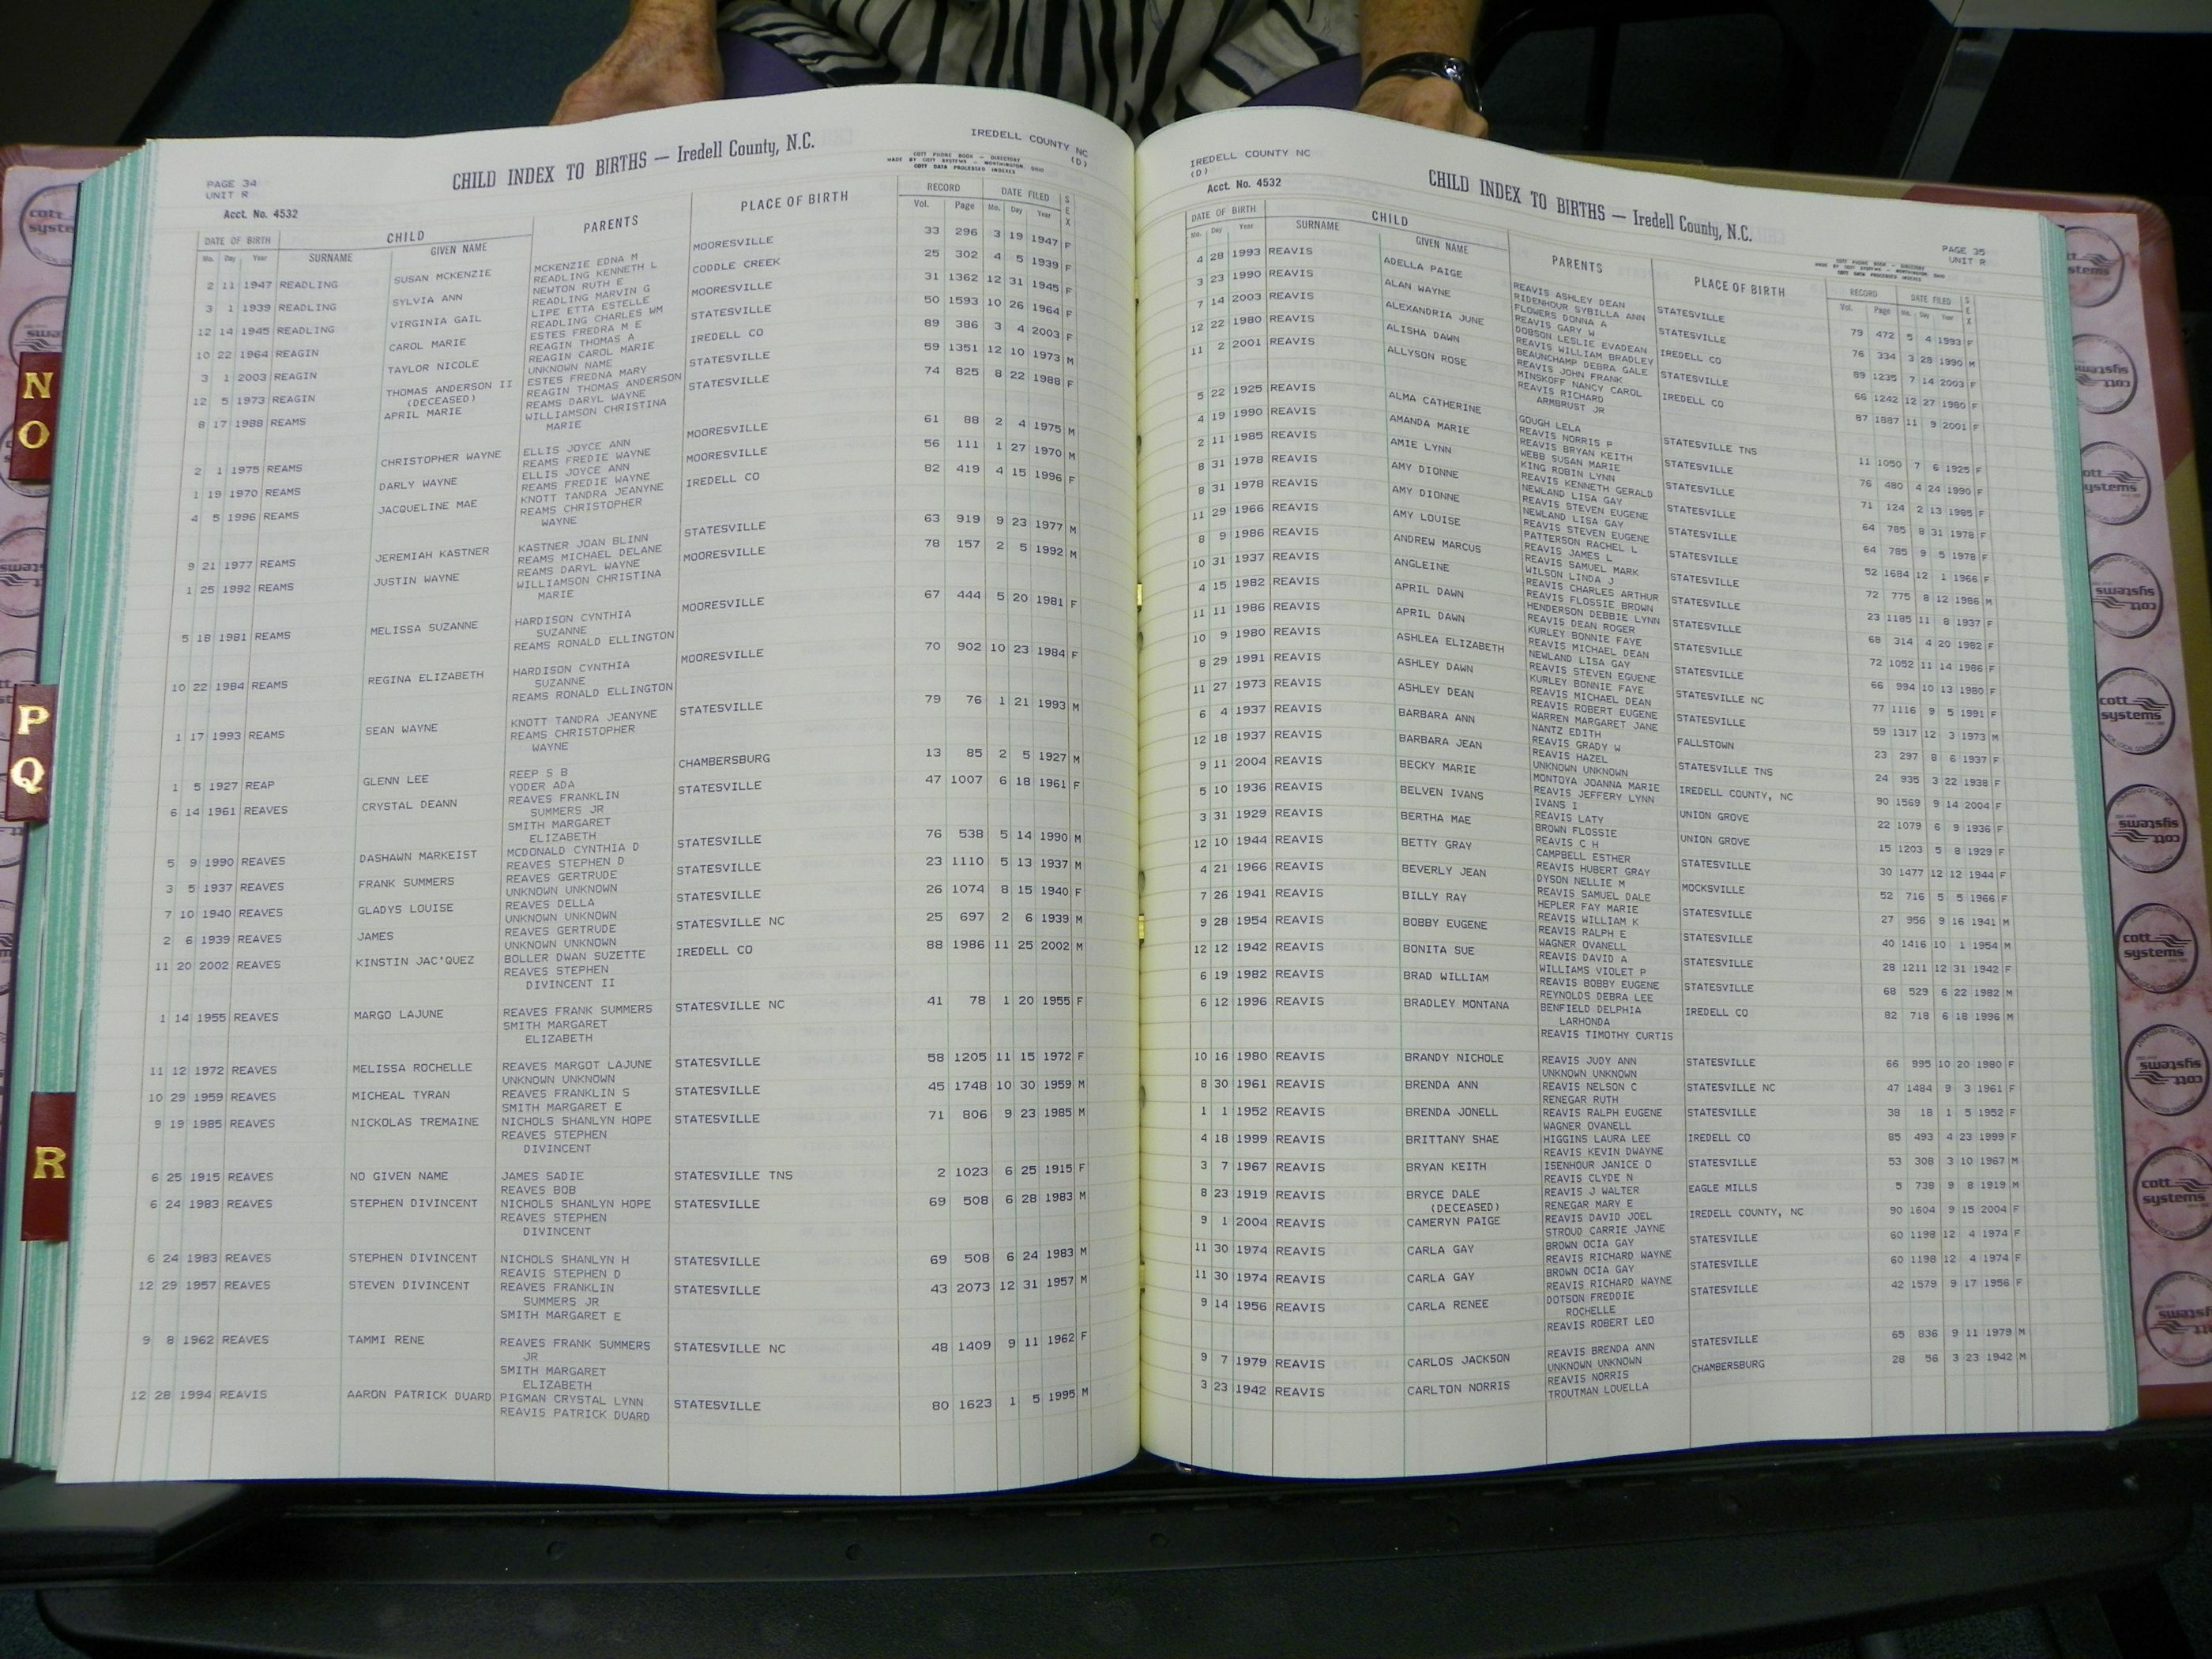 N
O
P
Q
R
cott systems
IREDELL COUNTY NC
(D)
CHILD INDEX TO BIRTHS — Iredell County, N.C.
COTT PHONE BOOK — DIRECTORY
MADE BY COTT SYSTEMS — WORTHINGTON, OHIO
COTT DATA PROCESSED INDEXES
PAGE 34
UNIT R
Acct. No. 4532
DATE OF BIRTH CHILD PARENTS PLACE OF BIRTH RECORD DATE FILED SEX
Mo. Day Year SURNAME GIVEN NAME Vol. Page Mo. Day Year
2 11 1947 READLING SUSAN MCKENZIE MCKENZIE EDNA M MOORESVILLE 33 296 3 19 1947 F
READLING KENNETH L
3 1 1939 READLING SYLVIA ANN NEWTON RUTH E CODDLE CREEK 25 302 4 5 1939 F
READLING MARVIN G
12 14 1945 READLING VIRGINIA GAIL LIPE ETTA ESTELLE MOORESVILLE 31 1362 12 31 1945 F
READLING CHARLES WM
10 22 1964 REAGIN CAROL MARIE ESTES FREDRA M E STATESVILLE 50 1593 10 26 1964 F
REAGIN THOMAS A
3 1 2003 REAGIN TAYLOR NICOLE REAGIN CAROL MARIE IREDELL CO 89 386 3 4 2003 F
UNKNOWN NAME
12 5 1973 REAGIN THOMAS ANDERSON II ESTES FREDNA MARY STATESVILLE 59 1351 12 10 1973 M
(DECEASED) REAGIN THOMAS ANDERSON
8 17 1988 REAMS APRIL MARIE REAMS DARYL WAYNE STATESVILLE 74 825 8 22 1988 F
WILLIAMSON CHRISTINA
MARIE
2 1 1975 REAMS CHRISTOPHER WAYNE ELLIS JOYCE ANN MOORESVILLE 61 88 2 4 1975 M
REAMS FREDIE WAYNE
1 19 1970 REAMS DARLY WAYNE ELLIS JOYCE ANN MOORESVILLE 56 111 1 27 1970 M
REAMS FREDIE WAYNE
4 5 1996 REAMS JACQUELINE MAE KNOTT TANDRA JEANYNE IREDELL CO 82 419 4 15 1996 F
REAMS CHRISTOPHER
WAYNE
9 21 1977 REAMS JEREMIAH KASTNER KASTNER JOAN BLINN STATESVILLE 63 919 9 23 1977 M
REAMS MICHAEL DELANE
1 25 1992 REAMS JUSTIN WAYNE REAMS DARYL WAYNE MOORESVILLE 78 157 2 5 1992 M
WILLIAMSON CHRISTINA
MARIE
5 18 1981 REAMS MELISSA SUZANNE HARDISON CYNTHIA MOORESVILLE 67 444 5 20 1981 F
SUZANNE
REAMS RONALD ELLINGTON
10 22 1984 REAMS REGINA ELIZABETH HARDISON CYNTHIA MOORESVILLE 70 902 10 23 1984 F
SUZANNE
REAMS RONALD ELLINGTON
1 17 1993 REAMS SEAN WAYNE KNOTT TANDRA JEANYNE STATESVILLE 79 76 1 21 1993 M
REAMS CHRISTOPHER
WAYNE
1 5 1927 REAP GLENN LEE REEP S B CHAMBERSBURG 13 85 2 5 1927 M
YODER ADA
6 14 1961 REAVES CRYSTAL DEANN REAVES FRANKLIN STATESVILLE 47 1007 6 18 1961 F
SUMMERS JR
SMITH MARGARET
ELIZABETH
5 9 1990 REAVES DASHAWN MARKEIST MCDONALD CYNTHIA D STATESVILLE 76 538 5 14 1990 M
REAVES STEPHEN D
3 5 1937 REAVES FRANK SUMMERS REAVES GERTRUDE STATESVILLE 23 1110 5 13 1937 M
UNKNOWN UNKNOWN
7 10 1940 REAVES GLADYS LOUISE REAVES DELLA STATESVILLE 26 1074 8 15 1940 F
UNKNOWN UNKNOWN
2 6 1939 REAVES JAMES REAVES GERTRUDE STATESVILLE NC 25 697 2 6 1939 M
UNKNOWN UNKNOWN
11 20 2002 REAVES KINSTIN JAC'QUEZ BOLLER DWAN SUZETTE IREDELL CO 88 1986 11 25 2002 M
REAVES STEPHEN
DIVINCENT II
1 14 1955 REAVES MARGO LAJUNE REAVES FRANK SUMMERS STATESVILLE NC 41 78 1 20 1955 F
SMITH MARGARET
ELIZABETH
11 12 1972 REAVES MELISSA ROCHELLE REAVES MARGOT LAJUNE STATESVILLE 58 1205 11 15 1972 F
UNKNOWN UNKNOWN
10 29 1959 REAVES MICHEAL TYRAN REAVES FRANKLIN S STATESVILLE 45 1748 10 30 1959 M
SMITH MARGARET E
9 19 1985 REAVES NICKOLAS TREMAINE NICHOLS SHANLYN HOPE STATESVILLE 71 806 9 23 1985 M
REAVES STEPHEN
DIVINCENT
6 25 1915 REAVES NO GIVEN NAME JAMES SADIE STATESVILLE TNS 2 1023 6 25 1915 F
REAVES BOB
6 24 1983 REAVES STEPHEN DIVINCENT NICHOLS SHANLYN HOPE STATESVILLE 69 508 6 28 1983 M
REAVES STEPHEN
DIVINCENT
6 24 1983 REAVES STEPHEN DIVINCENT NICHOLS SHANLYN H STATESVILLE 69 508 6 24 1983 M
REAVIS STEPHEN D
12 29 1957 REAVES STEVEN DIVINCENT REAVES FRANKLIN STATESVILLE 43 2073 12 31 1957 M
SUMMERS JR
SMITH MARGARET E
9 8 1962 REAVES TAMMI RENE REAVES FRANK SUMMERS STATESVILLE NC 48 1409 9 11 1962 F
JR
SMITH MARGARET
ELIZABETH
12 28 1994 REAVIS AARON PATRICK DUARD PIGMAN CRYSTAL LYNN STATESVILLE 80 1623 1 5 1995 M
REAVIS PATRICK DUARD
IREDELL COUNTY NC
(D)
Acct. No. 4532
CHILD INDEX TO BIRTHS — Iredell County, N.C.
PAGE 35
UNIT R
COTT PHONE BOOK — DIRECTORY
MADE BY COTT SYSTEMS — WORTHINGTON, OHIO
COTT DATA PROCESSED INDEXES
DATE OF BIRTH CHILD PARENTS PLACE OF BIRTH RECORD DATE FILED SEX
Mo. Day Year SURNAME GIVEN NAME Vol. Page Mo. Day Year
4 28 1993 REAVIS ADELLA PAIGE REAVIS ASHLEY DEAN STATESVILLE 79 472 5 4 1993 F
RIDENHOUR SYBILLA ANN
3 23 1990 REAVIS ALAN WAYNE FLOWERS DONNA A STATESVILLE 76 334 3 28 1990 M
REAVIS GARY W
7 14 2003 REAVIS ALEXANDRIA JUNE DOBSON LESLIE EVADEAN IREDELL CO 89 1235 7 14 2003 F
REAVIS WILLIAM BRADLEY
12 22 1980 REAVIS ALISHA DAWN BEAUNCHAMP DEBRA GALE STATESVILLE 66 1242 12 27 1980 F
REAVIS JOHN FRANK
11 2 2001 REAVIS ALLYSON ROSE MINSKOFF NANCY CAROL IREDELL CO 87 1887 11 9 2001 F
REAVIS RICHARD
ARMBRUST JR
5 22 1925 REAVIS ALMA CATHERINE GOUGH LELA STATESVILLE TNS 11 1050 7 6 1925 F
REAVIS NORRIS P
4 19 1990 REAVIS AMANDA MARIE REAVIS BRYAN KEITH STATESVILLE 76 480 4 24 1990 F
WEBB SUSAN MARIE
2 11 1985 REAVIS AMIE LYNN KING ROBIN LYNN STATESVILLE 71 124 2 13 1985 F
REAVIS KENNETH GERALD
8 31 1978 REAVIS AMY DIONNE NEWLAND LISA GAY STATESVILLE 64 785 8 31 1978 F
REAVIS STEVEN EUGENE
8 31 1978 REAVIS AMY DIONNE NEWLAND LISA GAY STATESVILLE 64 785 9 5 1978 F
REAVIS STEVEN EUGENE
11 29 1966 REAVIS AMY LOUISE PATTERSON RACHEL L STATESVILLE 52 1684 12 1 1966 F
REAVIS JAMES L
8 9 1986 REAVIS ANDREW MARCUS REAVIS SAMUEL MARK STATESVILLE 72 775 8 12 1986 M
WILSON LINDA J
10 31 1937 REAVIS ANGLEINE REAVIS CHARLES ARTHUR STATESVILLE 23 1185 11 8 1937 F
REAVIS FLOSSIE BROWN
4 15 1982 REAVIS APRIL DAWN HENDERSON DEBBIE LYNN STATESVILLE 68 314 4 20 1982 F
REAVIS DEAN ROGER
11 11 1986 REAVIS APRIL DAWN KURLEY BONNIE FAYE STATESVILLE 72 1052 11 14 1986 F
REAVIS MICHAEL DEAN
10 9 1980 REAVIS ASHLEA ELIZABETH NEWLAND LISA GAY STATESVILLE NC 66 994 10 13 1980 F
REAVIS STEVEN EGUENE
8 29 1991 REAVIS ASHLEY DAWN KURLEY BONNIE FAYE STATESVILLE 77 1116 9 5 1991 F
REAVIS MICHAEL DEAN
11 27 1973 REAVIS ASHLEY DEAN REAVIS ROBERT EUGENE FALLSTOWN 59 1317 12 3 1973 M
WARREN MARGARET JANE
6 4 1937 REAVIS BARBARA ANN NANTZ EDITH STATESVILLE TNS 23 297 8 6 1937 F
REAVIS GRADY W
12 18 1937 REAVIS BARBARA JEAN REAVIS HAZEL IREDELL COUNTY, NC 24 935 3 22 1938 F
UNKNOWN UNKNOWN
9 11 2004 REAVIS BECKY MARIE MONTOYA JOANNA MARIE UNION GROVE 90 1569 9 14 2004 F
REAVIS JEFFERY LYNN
5 10 1936 REAVIS BELVEN IVANS IVANS I UNION GROVE 22 1079 6 9 1936 F
REAVIS LATY
3 31 1929 REAVIS BERTHA MAE BROWN FLOSSIE STATESVILLE 15 1203 5 8 1929 F
REAVIS C H
12 10 1944 REAVIS BETTY GRAY CAMPBELL ESTHER MOCKSVILLE 30 1477 12 12 1944 F
REAVIS HUBERT GRAY
4 21 1966 REAVIS BEVERLY JEAN DYSON NELLIE M STATESVILLE 52 716 5 5 1966 F
REAVIS SAMUEL DALE
7 26 1941 REAVIS BILLY RAY HEPLER FAY MARIE STATESVILLE 27 956 9 16 1941 M
REAVIS WILLIAM K
9 28 1954 REAVIS BOBBY EUGENE REAVIS RALPH E STATESVILLE 40 1416 10 1 1954 M
WAGNER OVANELL
12 12 1942 REAVIS BONITA SUE REAVIS DAVID A STATESVILLE 28 1211 12 31 1942 F
WILLIAMS VIOLET P
6 19 1982 REAVIS BRAD WILLIAM REAVIS BOBBY EUGENE STATESVILLE 68 529 6 22 1982 M
REYNOLDS DEBRA LEE
6 12 1996 REAVIS BRADLEY MONTANA BENFIELD DELPHIA IREDELL CO 82 718 6 18 1996 M
LARHONDA
REAVIS TIMOTHY CURTIS
10 16 1980 REAVIS BRANDY NICHOLE REAVIS JUDY ANN STATESVILLE 66 995 10 20 1980 F
UNKNOWN UNKNOWN
8 30 1961 REAVIS BRENDA ANN REAVIS NELSON C STATESVILLE NC 47 1484 9 3 1961 F
RENEGAR RUTH
1 1 1952 REAVIS BRENDA JONELL REAVIS RALPH EUGENE STATESVILLE 38 18 1 5 1952 F
WAGNER OVANELL
4 18 1999 REAVIS BRITTANY SHAE HIGGINS LAURA LEE IREDELL CO 85 493 4 23 1999 F
REAVIS KEVIN DWAYNE
3 7 1967 REAVIS BRYAN KEITH ISENHOUR JANICE O STATESVILLE 53 308 3 10 1967 M
REAVIS CLYDE N
8 23 1919 REAVIS BRYCE DALE REAVIS J WALTER EAGLE MILLS 5 738 9 8 1919 M
(DECEASED) RENEGAR MARY E
9 1 2004 REAVIS CAMERYN PAIGE REAVIS DAVID JOEL IREDELL COUNTY, NC 90 1604 9 15 2004 F
STROUD CARRIE JAYNE
11 30 1974 REAVIS CARLA GAY BROWN OCIA GAY STATESVILLE 60 1198 12 4 1974 F
REAVIS RICHARD WAYNE
11 30 1974 REAVIS CARLA GAY BROWN OCIA GAY STATESVILLE 60 1198 12 4 1974 F
REAVIS RICHARD WAYNE
9 14 1956 REAVIS CARLA RENEE DOTSON FREDDIE STATESVILLE 42 1579 9 17 1956 F
ROCHELLE
REAVIS ROBERT LEO
9 7 1979 REAVIS CARLOS JACKSON REAVIS BRENDA ANN STATESVILLE 65 836 9 11 1979 M
UNKNOWN UNKNOWN
3 23 1942 REAVIS CARLTON NORRIS REAVIS NORRIS CHAMBERSBURG 28 56 3 23 1942 M
TROUTMAN LOUELLA
cott systems
cott systems
cott systems